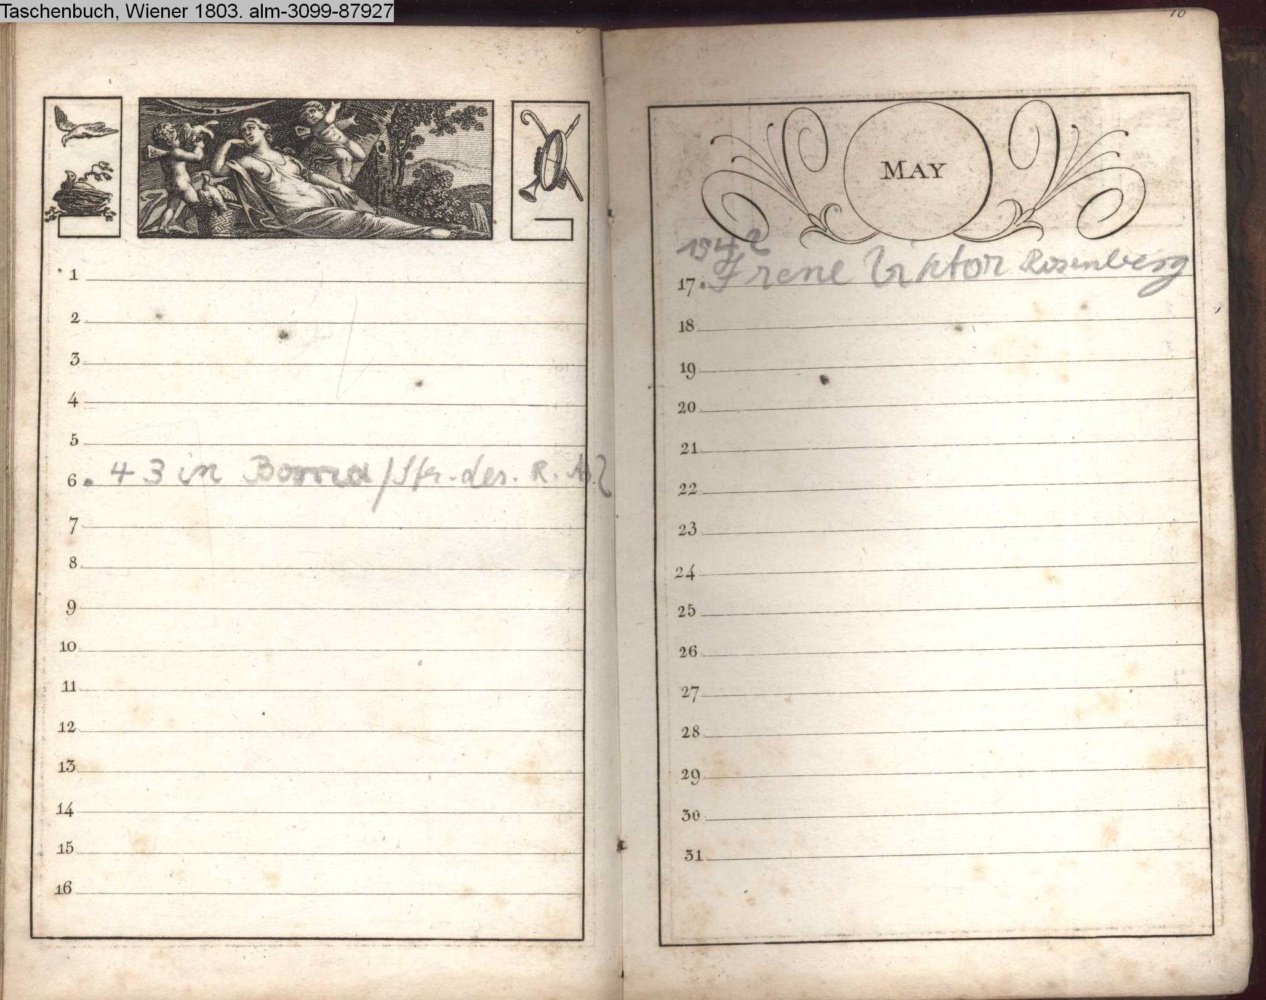 Taschenbuch, Wiener 1803. alm-3099-87927
1
2
3
4
5
6. 43 in
7
8
9
10
11
12
13
14
15
16
10
MAY
1942
17. Irene Viktor Rosenberg
18
19
20
21
22
23
24
25
26
27
28
29
30
31